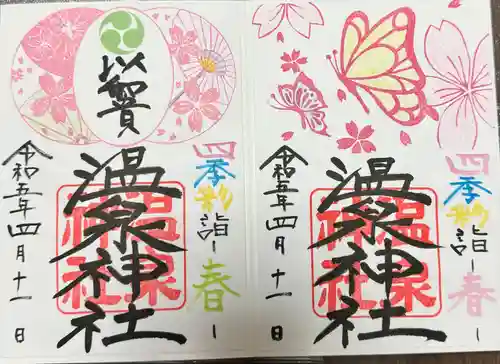 四季彩詣－春－
温泉神社
温泉神社
令和五年四月十一日
四季彩詣－春－
温泉神社
温泉神社
令和五年四月十一日